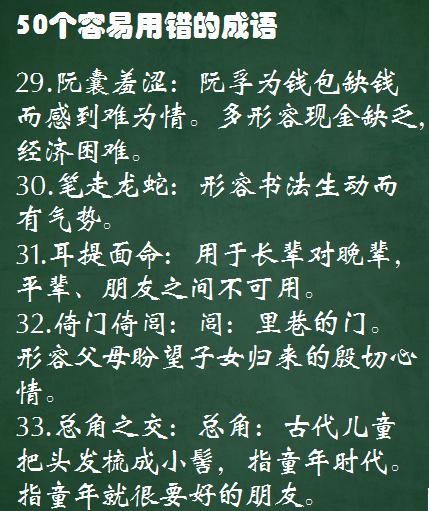 50个容易用错的成语
29.阮囊羞涩：阮孚为钱包缺钱
而感到难为情。多形容现金缺乏,
经济困难。
30.笔走龙蛇：形容书法生动而
有气势。
31.耳提面命：用于长辈对晚辈，
平辈、朋友之间不可用。
32.倚门倚闾：闾：里巷的门。
形容父母盼望子女归来的殷切心
情。
33.总角之交：总角：古代儿童
把头发梳成小髻，指童年时代。
指童年就很要好的朋友。